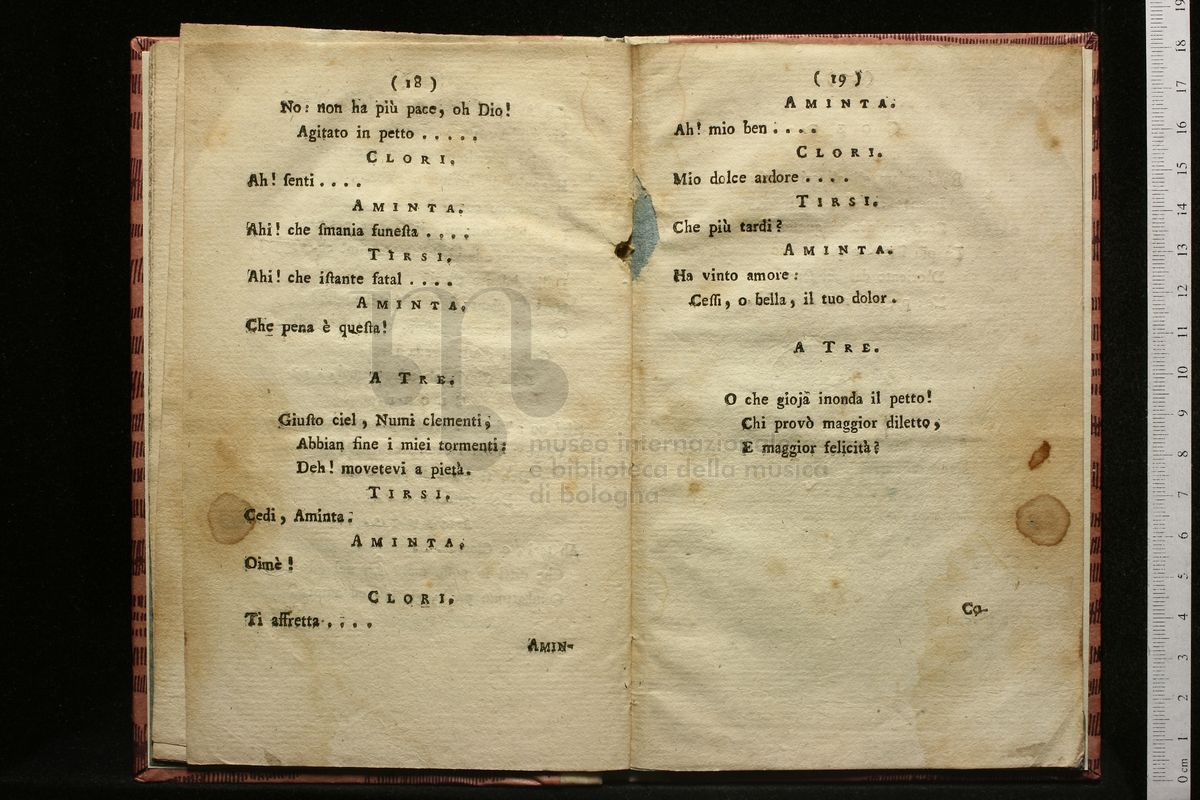 ( 18 )
No: non ha più pace, oh Dio!
Agitato in petto . . . . .
CLORI.
Ah! ſenti . . . .
AMINTA.
Ahi! che ſmania funeſta . . . .
TIRSI.
Ahi! che iſtante fatal . . . .
AMINTA.
Che pena è queſta!
A TRE.
Giuſto ciel, Numi clementi,
Abbian fine i miei tormenti:
Deh! movetevi a pietà.
TIRSI.
Cedi, Aminta.
AMINTA.
Oimè!
CLORI.
Ti affretta . . . .
AMIN-
( 19 )
AMINTA.
Ah! mio ben . . . .
CLORI.
Mio dolce ardore . . . .
TIRSI.
Che più tardi?
AMINTA.
Ha vinto amore:
Ceſſi, o bella, il tuo dolor.
A TRE.
O che gioja inonda il petto!
Chi provò maggior diletto,
E maggior felicità?
Co-
museo internazionale
e biblioteca della musica
di bologna
0 cm 1 2 3 4 5 6 7 8 9 10 11 12 13 14 15 16 17 18 19